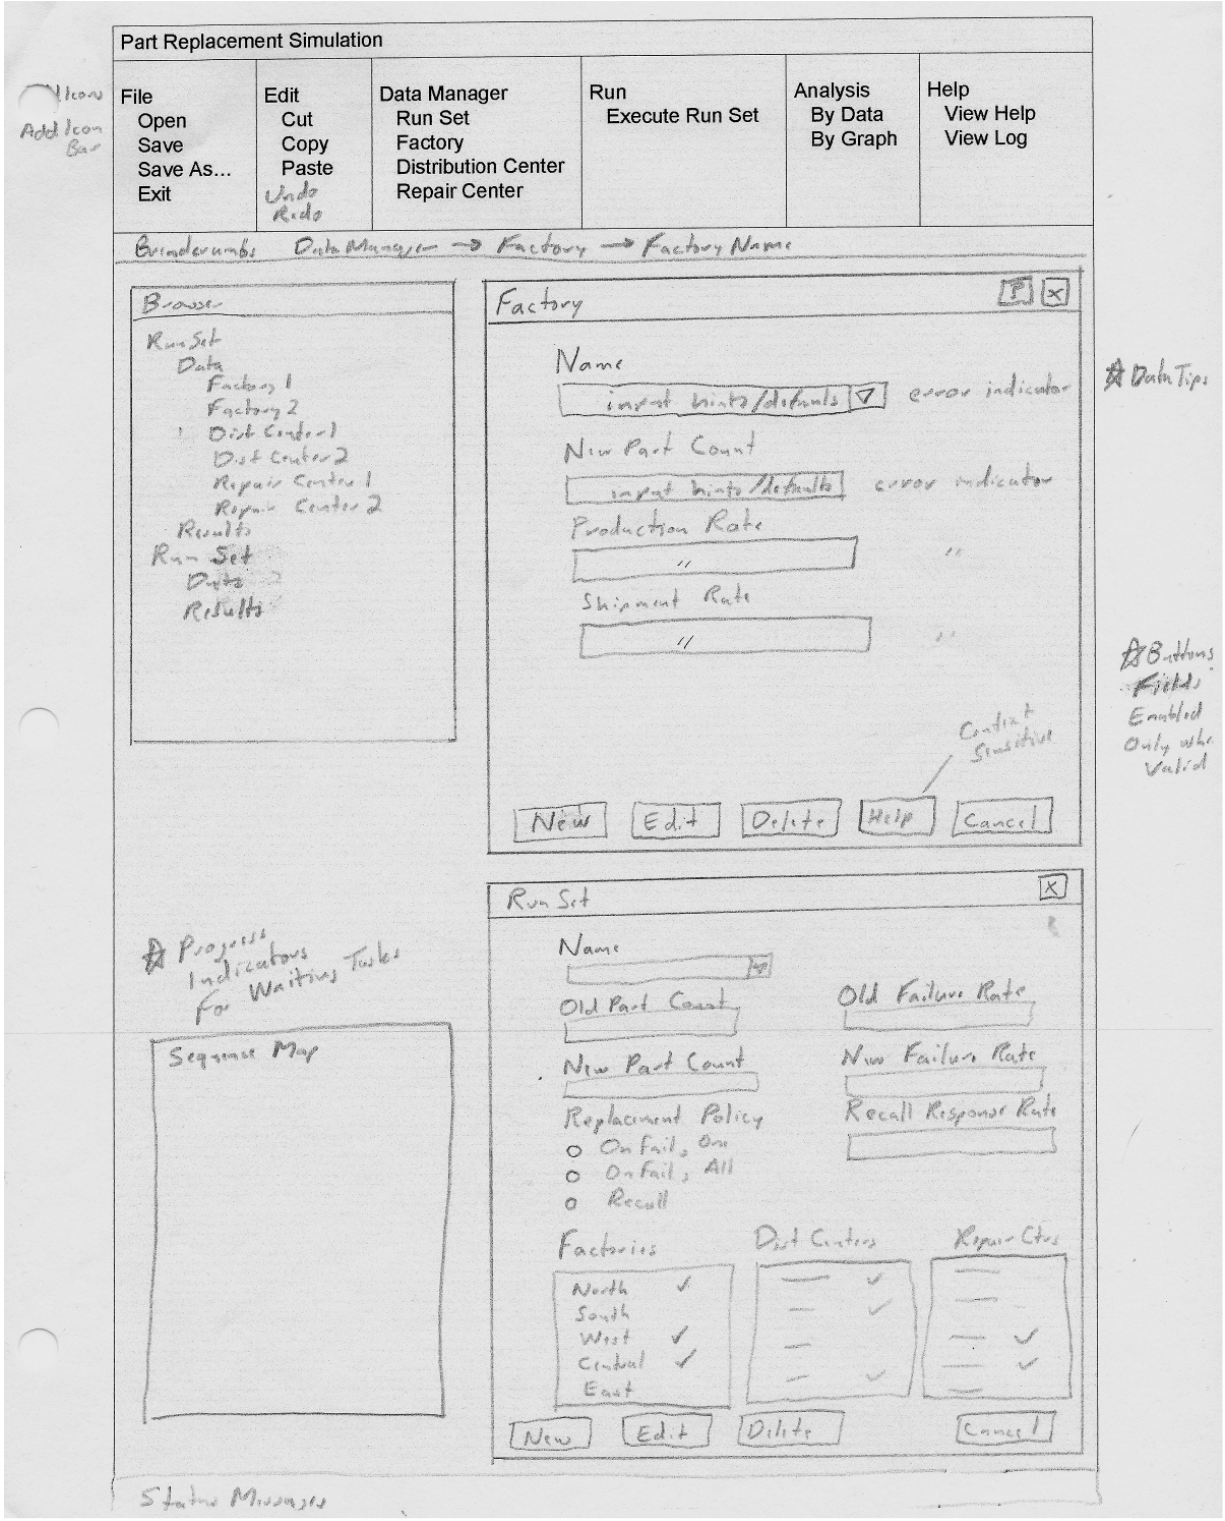 Part Replacement Simulation
Icon
Add Icon
Bar
File
Open
Save
Save As...
Exit
Edit
Cut
Copy
Paste
Undo
Redo
Data Manager
Run Set
Factory
Distribution Center
Repair Center
Run
Execute Run Set
Analysis
By Data
By Graph
Help
View Help
View Log
Breadcrumbs Data Manager → Factory → Factory Name
Browser
Run Set
Data
Factory 1
Factory 2
Dist Center 1
Dist Center 2
Repair Center 1
Repair Center 2
Results
Run Set
Data
Results
Factory ? X
Name
input hints/defaults error indicator
New Part Count
input hints/defaults error indicator
Production Rate
" "
Shipment Rate
" "
Context
Sensitive
New Edit Delete Help Cancel
☆ Data Tips
☆ Buttons
Fields
Enabled
Only whe
Valid
☆ Progress
Indicators
For Waiting Tasks
Sequence Map
Run Set X
Name
Old Part Count Old Failure Rate
New Part Count New Failure Rate
Replacement Policy Recall Response Rate
On Fail, One
On Fail, All
Recall
Factories Dist Centers Repair Ctrs
North ✓
South
West ✓
Central ✓
East
New Edit Delete Cancel
Status Messages